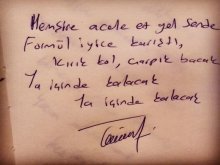 Hemşire acele et gel sende
Formül iyice karıştı,
Kırık kol, çarpık bacak
Ya içinde kalacak
Ya içinde kalacak